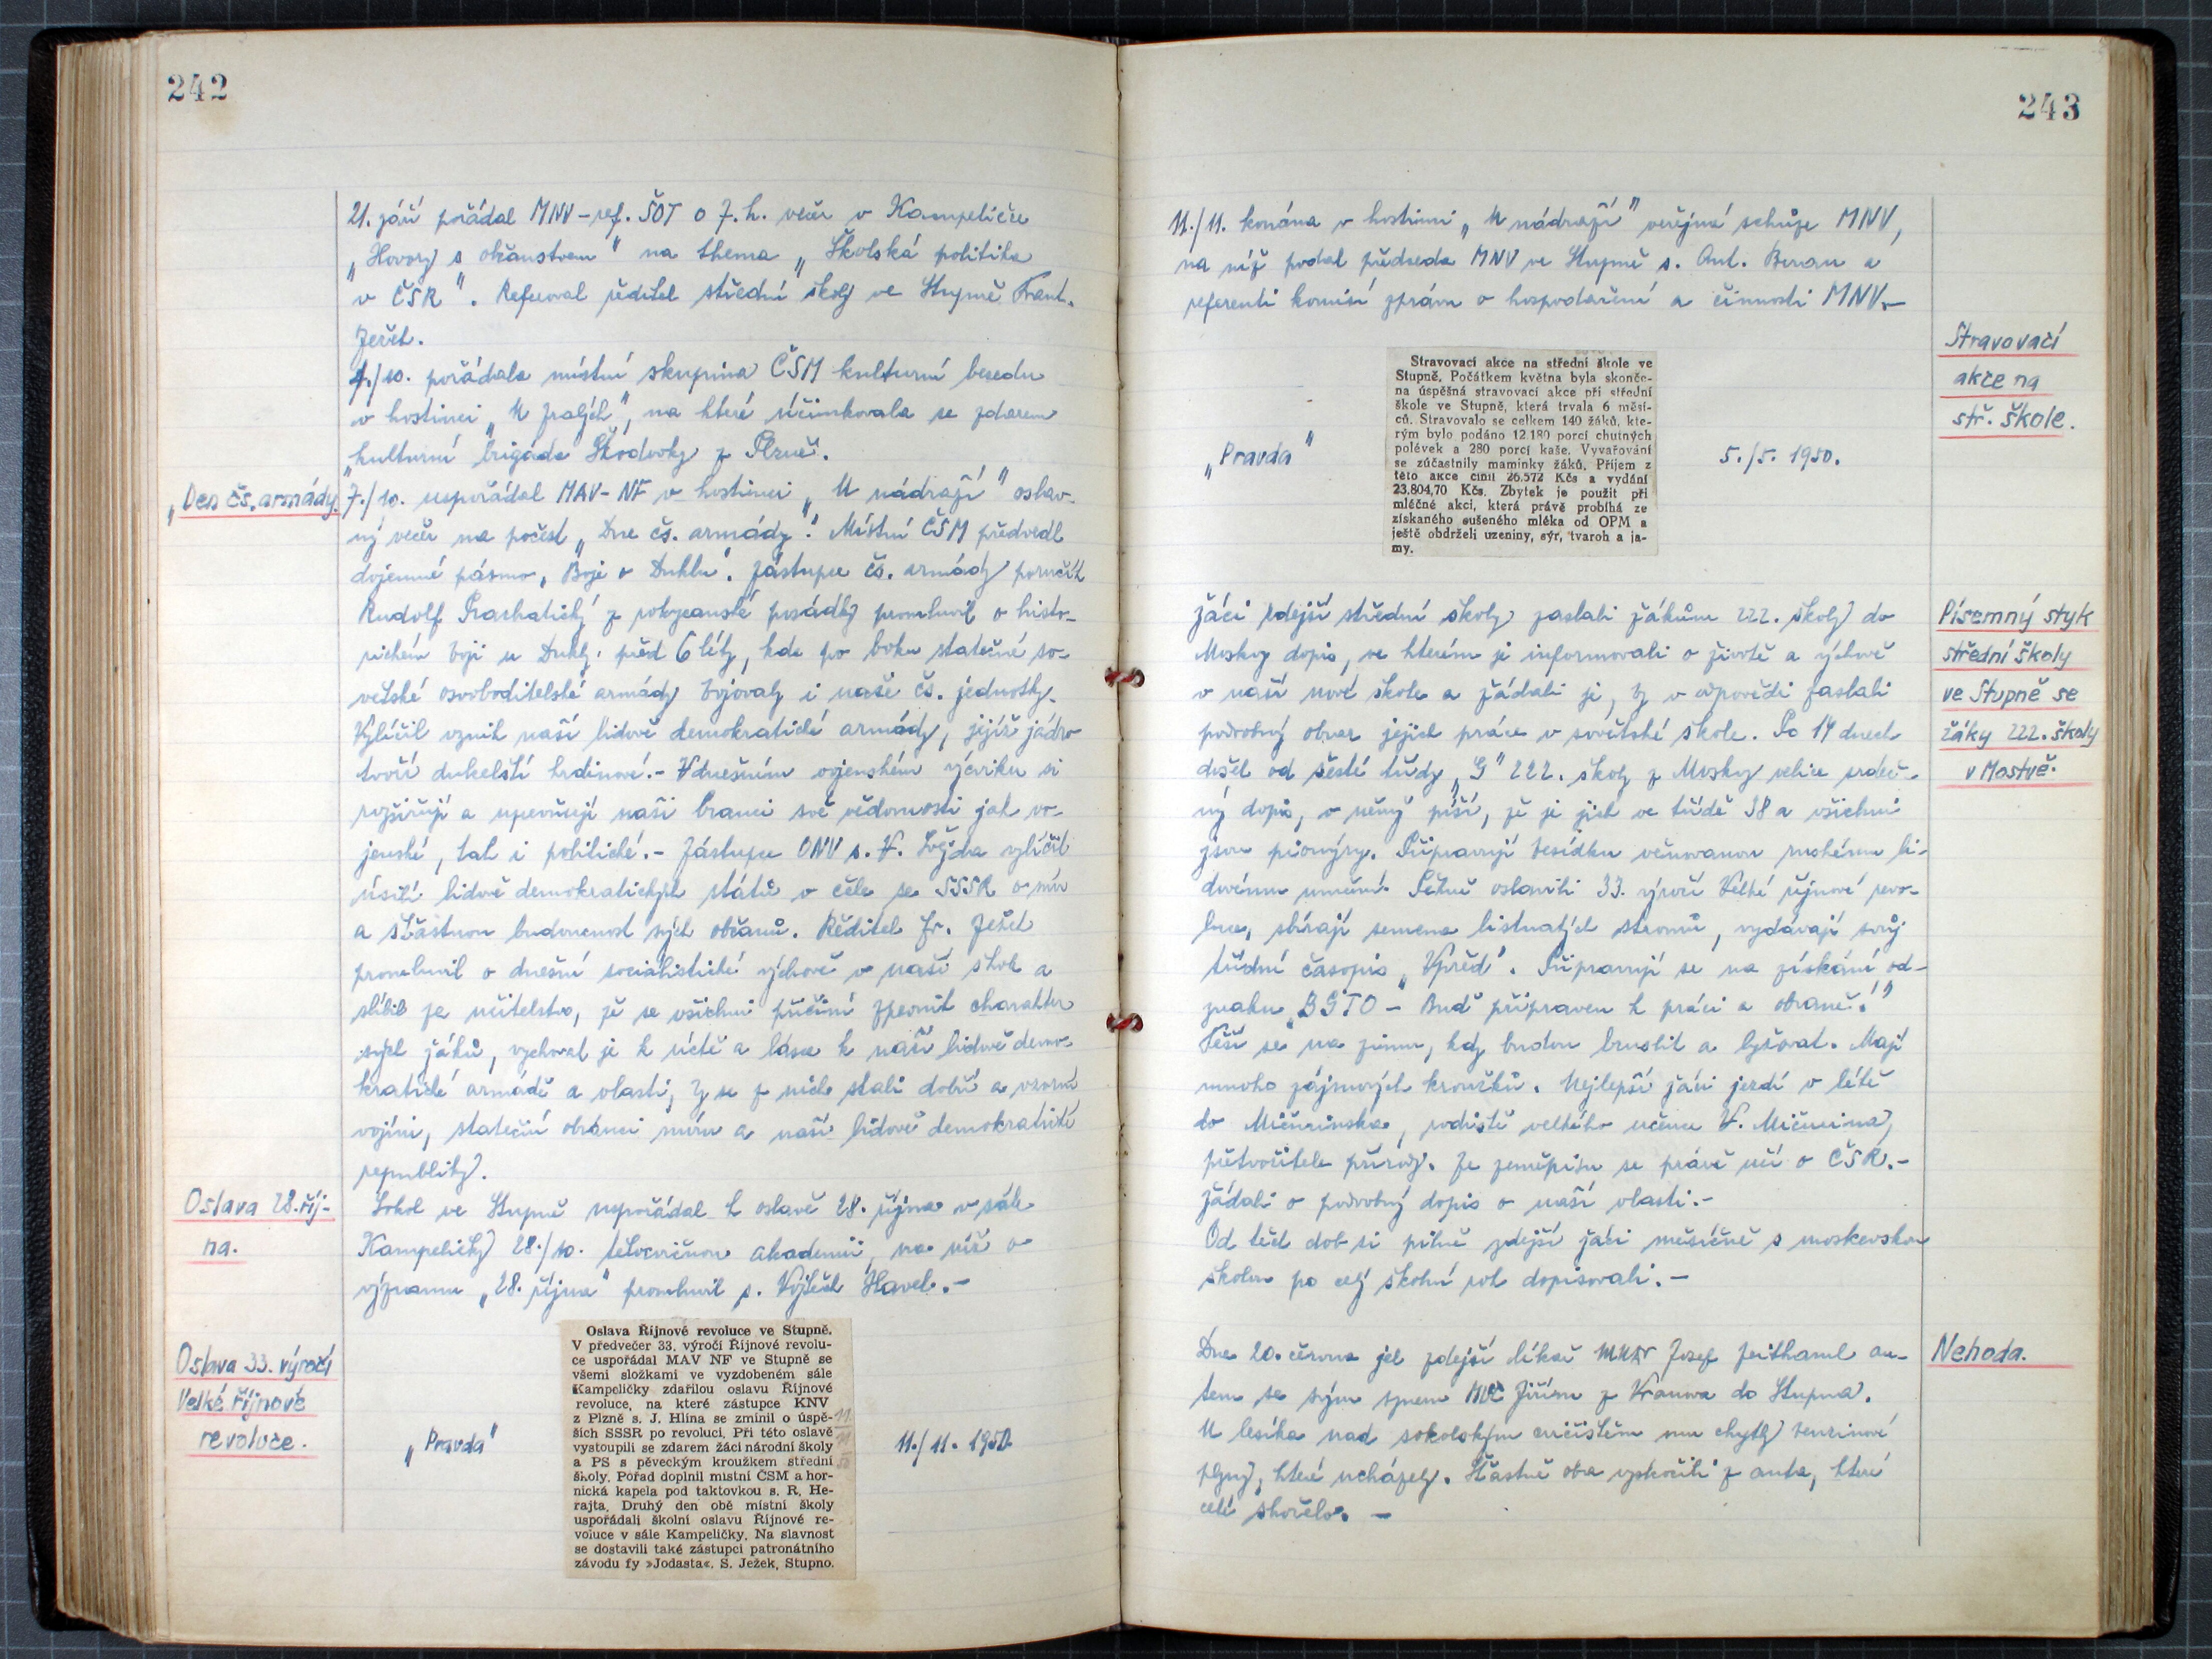 242
21. září pořádal MNV-ref. ŠOT o 7. h. večer v Kampeličce
„Hovory s občanstvem" na thema „Školská politika
v ČSR". Referoval ředitel střední školy ve Stupně Frant.
Ježek.
4./10. pořádala místní skupina ČSM kulturní besedu
v hostinci „U Zralých", na které účinkovala se zdarem
kulturní brigáda Škodovky z Plzně.
„Den čs. armády."
7./10. uspořádal MAV-NF v hostinci „U nádraží" oslav-
ný večer na počest „Dne čs. armády". Místní ČSM předvedl
dojemné pásmo „Boje o Duklu". Zástupce čs. armády poručík
Rudolf Prachatický z rokycanské posádky promluvil o histo-
rickém boji u Dukly před 6 léty, kde po boku statečné so-
větské osvoboditelské armády bojovaly i naše čs. jednotky.
Vylíčil vznik naší lidově demokratické armády, jejíž jádro
tvoří dukelští hrdinové.- V dnešním vojenském výcviku si
rozšiřují a upevňují naši branci své vědomosti jak vo-
jenské, tak i politické.- Zástupce ONV s. V. vylíčil
úsilí lidově demokratických států v čele se SSSR o mír
a šťastnou budoucnost svých občanů. Ředitel Fr. Ježek
promluvil o dnešní socialistické výchově v naší škole a
slíbil za učitelstvo, že se všichni přičiní zpevnit charakter
svých žáků, vychovat je k úctě a lásce k naší lidově demo-
kratické armádě a vlasti, by se z nich stali dobří a vzorní
vojíni, stateční obránci míru a naší lidově demokratické
republiky.
Oslava 28. říj-
na.
Sokol ve Stupně uspořádal k oslavě 28. října v sále
Kampeličky 28./10. tělocvičnou akademii, na níž o
významu „28. října" promluvil s. Vojtěch Havel.-
Oslava 33. výročí
Velké říjnové
revoluce.
„Pravda"
Oslava Říjnové revoluce ve Stupně.
V předvečer 33. výročí Říjnové revolu-
ce uspořádal MAV NF ve Stupně se
všemi složkami ve vyzdobeném sále
Kampeličky zdařilou oslavu Říjnové
revoluce, na které zástupce KNV
z Plzně s. J. Hlína se zmínil o úspě-
ších SSSR po revoluci. Při této oslavě
vystoupili se zdarem žáci národní školy
a PS s pěveckým kroužkem střední
školy. Pořad doplnil místní ČSM a hor-
nická kapela pod taktovkou s. R. He-
rajta. Druhý den obě místní školy
uspořádali školní oslavu Říjnové re-
voluce v sále Kampeličky. Na slavnost
se dostavili také zástupci patronátního
závodu fy »Jodasta«. S. Ježek, Stupno.
11./11. 1950.
243
11./11. konána v hostinci „U nádraží" veřejná schůze MNV,
na níž podal předseda MNV ve Stupně s. Ant. Beran a
referenti komisí zprávu o hospodaření a činnosti MNV.-
Stravovací
akce na
stř. škole.
„Pravda"
Stravovací akce na střední škole ve
Stupně. Počátkem května byla skonče-
na úspěšná stravovací akce při střední
škole ve Stupně, která trvala 6 měsí-
ců. Stravovalo se celkem 140 žáků, kte-
rým bylo podáno 12.180 porcí chutných
polévek a 280 porcí kaše. Vyvařování
se zúčastnily maminky žáků. Příjem z
této akce činil 26.572 Kčs a vydání
23.804,70 Kčs. Zbytek je použit při
mléčné akci, která právě probíhá ze
získaného sušeného mléka od OPM a
ještě obdrželi uzeniny, sýr, tvaroh a ja-
my.
5./5. 1950.
Písemný styk
střední školy
ve Stupně se
žáky 222. školy
v Mostvě.
Žáci zdejší střední školy zaslali žákům 222. školy do
Moskvy dopis, ve kterém je informovali o životě a výchově
v naší nové škole a žádali je, by v odpovědi zaslali
podrobný obraz jejich práce v sovětské škole. Po 14 dnech
došel od šesté třídy „G" 222. školy z Moskvy velice srdeč-
ný dopis, v němž píší, že je jich ve třídě 38 a všichni
jsou pionýry. Připravují besídku věnovanou ruskému li-
dovému umění. Pěkně oslavili 33. výročí Velké říjnové revo-
luce, sbírají semena listnatých stromů, vydávají svůj
třídní časopis „Vpřed". Připravují se na získání od-
znaku „BGTO - Buď připraven k práci a obraně!"
Těší se na zimu, kdy budou bruslit a lyžovat. Mají
mnoho zájmových kroužků. Nejlepší žáci jezdí v létě
do Mičurinska, rodiště velkého učence V. Mičurina,
přetvořitele přírody. Ze zeměpisu se právě učí o ČSR.-
Žádali o podrobný dopis o naší vlasti.-
Od těch dob si pilně zdejší žáci měsíčně s moskevskou
školou po celý školní rok dopisovali.-
Nehoda.
Dne 20. června jel zdejší lékař MUDr Josef Zeithaml au-
tem se svým synem MUC Jiřím z Vranova do Stupna.
U lesíka nad sokolským cvičištěm mu chytly benzinové
plyny, které ucházely. Šťastně oba vyskočili z auta, které
celé shořelo.-